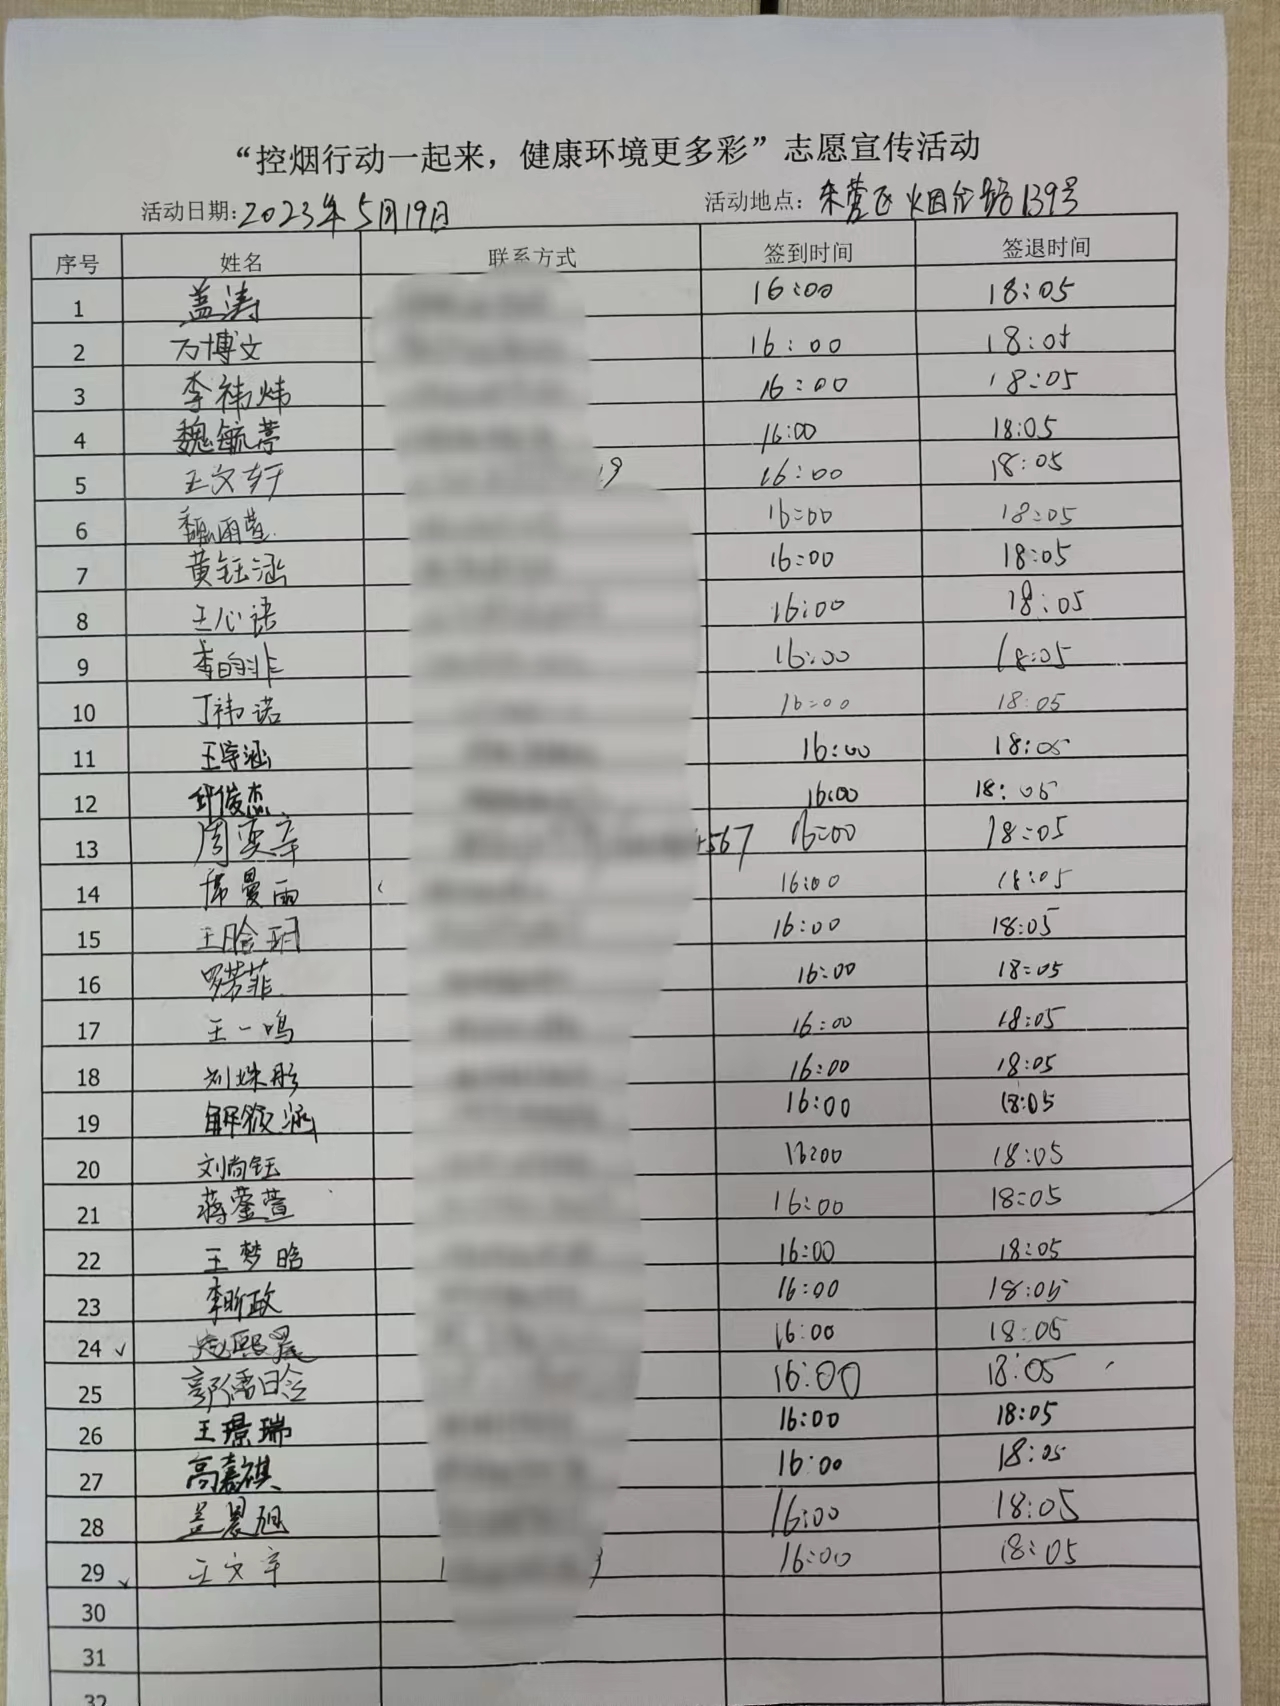 “控烟行动一起来，健康环境更多彩”志愿宣传活动
活动日期:2023年5月19日 活动地点: 区烟台路139号
序号 姓名 联系方式 签到时间 签退时间
1 盖涛 16:00 18:05
2 万博文 16:00 18:05
3 李祎炜 16:00 18:05
4 魏毓葶 16:00 18:05
5 王文轩 19 16:00 18:05
6 魏雨萱 16:00 18:05
7 黄钰涵 16:00 18:05
8 王心语 16:00 18:05
9 李昀非 16:00 18:05
10 丁祎诺 16:00 18:05
11 王宇涵 16:00 18:05
12 俊杰 16:00 18:05
13 周奕辛 4567 16:00 18:05
14 曼雨 16:00 18:05
15 王 玥 16:00 18:05
16 罗芳菲 16:00 18:05
17 王一鸣 16:00 18:05
18 刘姝彤 16:00 18:05
19 解筱涵 16:00 18:05
20 刘尚钰 16:00 18:05
21 蒋蓥萱 16:00 18:05
22 王梦晗 16:00 18:05
23 李昕政 16:00 18:05
24 ✓ 熙晨 16:00 18:05
25 郭儒 16:00 18:05
26 王璟瑞 16:00 18:05
27 高嘉祺 16:00 18:05
28 盖晨旭 16:00 18:05
29 ✓ 王文宇 1 16:00 18:05
30
31
32